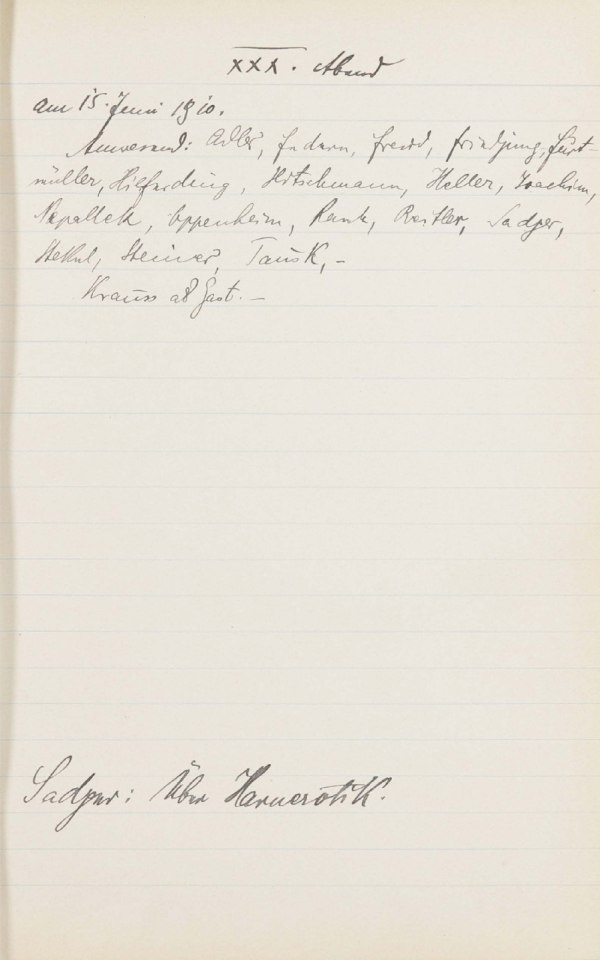 XXX. Abend
am 15. Juni 1910.
Anwesend: Adler, Federn, Freud, Friedjung, Furt-
müller, Hilferding, Hitschmann, Heller, Joachim,
Nepallek, Oppenheim, Rank, Reitler, Sadger,
Stekel, Steiner, Tausk, –
Krauss als Gast. –
Sadger: Über Harnerotik.